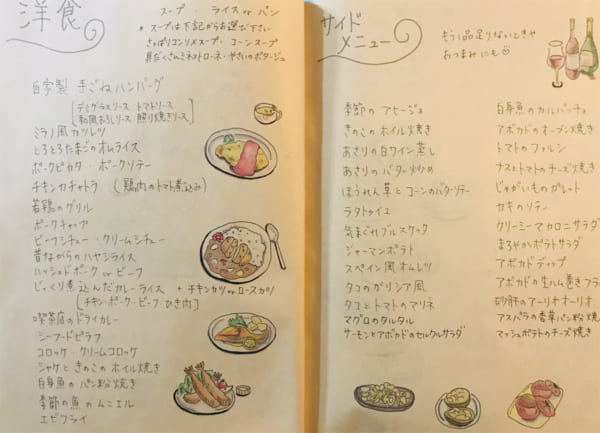 洋食
スープ ・ ライス or パン
* スープは下記からお選び下さい
さっぱりコンソメスープ・コーンスープ
具だくさんミネストローネ・やさいのポタージュ
自家製 手ごねハンバーグ
デミグラスソース トマトソース
和風おろしソース 照り焼きソース
ミラノ風カツレツ
とろとろたまごのオムライス
ポークピカタ・ポークソテー
チキンカチャトラ (鶏肉のトマト煮込み)
若鶏のグリル
ポークチャップ
ビーフシチュー・クリームシチュー
昔ながらのハヤシライス
ハッシュドポーク or ビーフ
じっくり煮込んだカレーライス + チキンカツ or ロースカツ
[チキン・ポーク・ビーフ・ひき肉]
喫茶店のドライカレー
シーフードピラフ
コロッケ・クリームコロッケ
シャケときのこのホイル焼き
白身魚のパン粉焼き
季節の魚のムニエル
エビフライ
サイドメニュー
もう1品足りないときや
おつまみにも♡
季節のアヒージョ
きのこのホイル焼き
あさりの白ワイン蒸し
あさりのバター炒め
ほうれん草とコーンのバターソテー
ラタトゥイユ
気まぐれブルスケッタ
ジャーマンポテト
スペイン風オムレツ
タコのガリシア風
タコとトマトのマリネ
マグロのタルタル
サーモンとアボカドのセルクルサラダ
白身魚のカルパッチョ
アボカドのオーブン焼き
トマトのファルシ
ナスとトマトのチーズ焼き
じゃがいものガレット
カキのソテー
クリーミーマカロニサラダ
まろやかポテトサラダ
アボカドディップ
アボカドの生ハム巻きフラ
砂肝のアーリオオーリオ
アスパラの香草パン粉焼
マッシュポテトのチーズ焼き